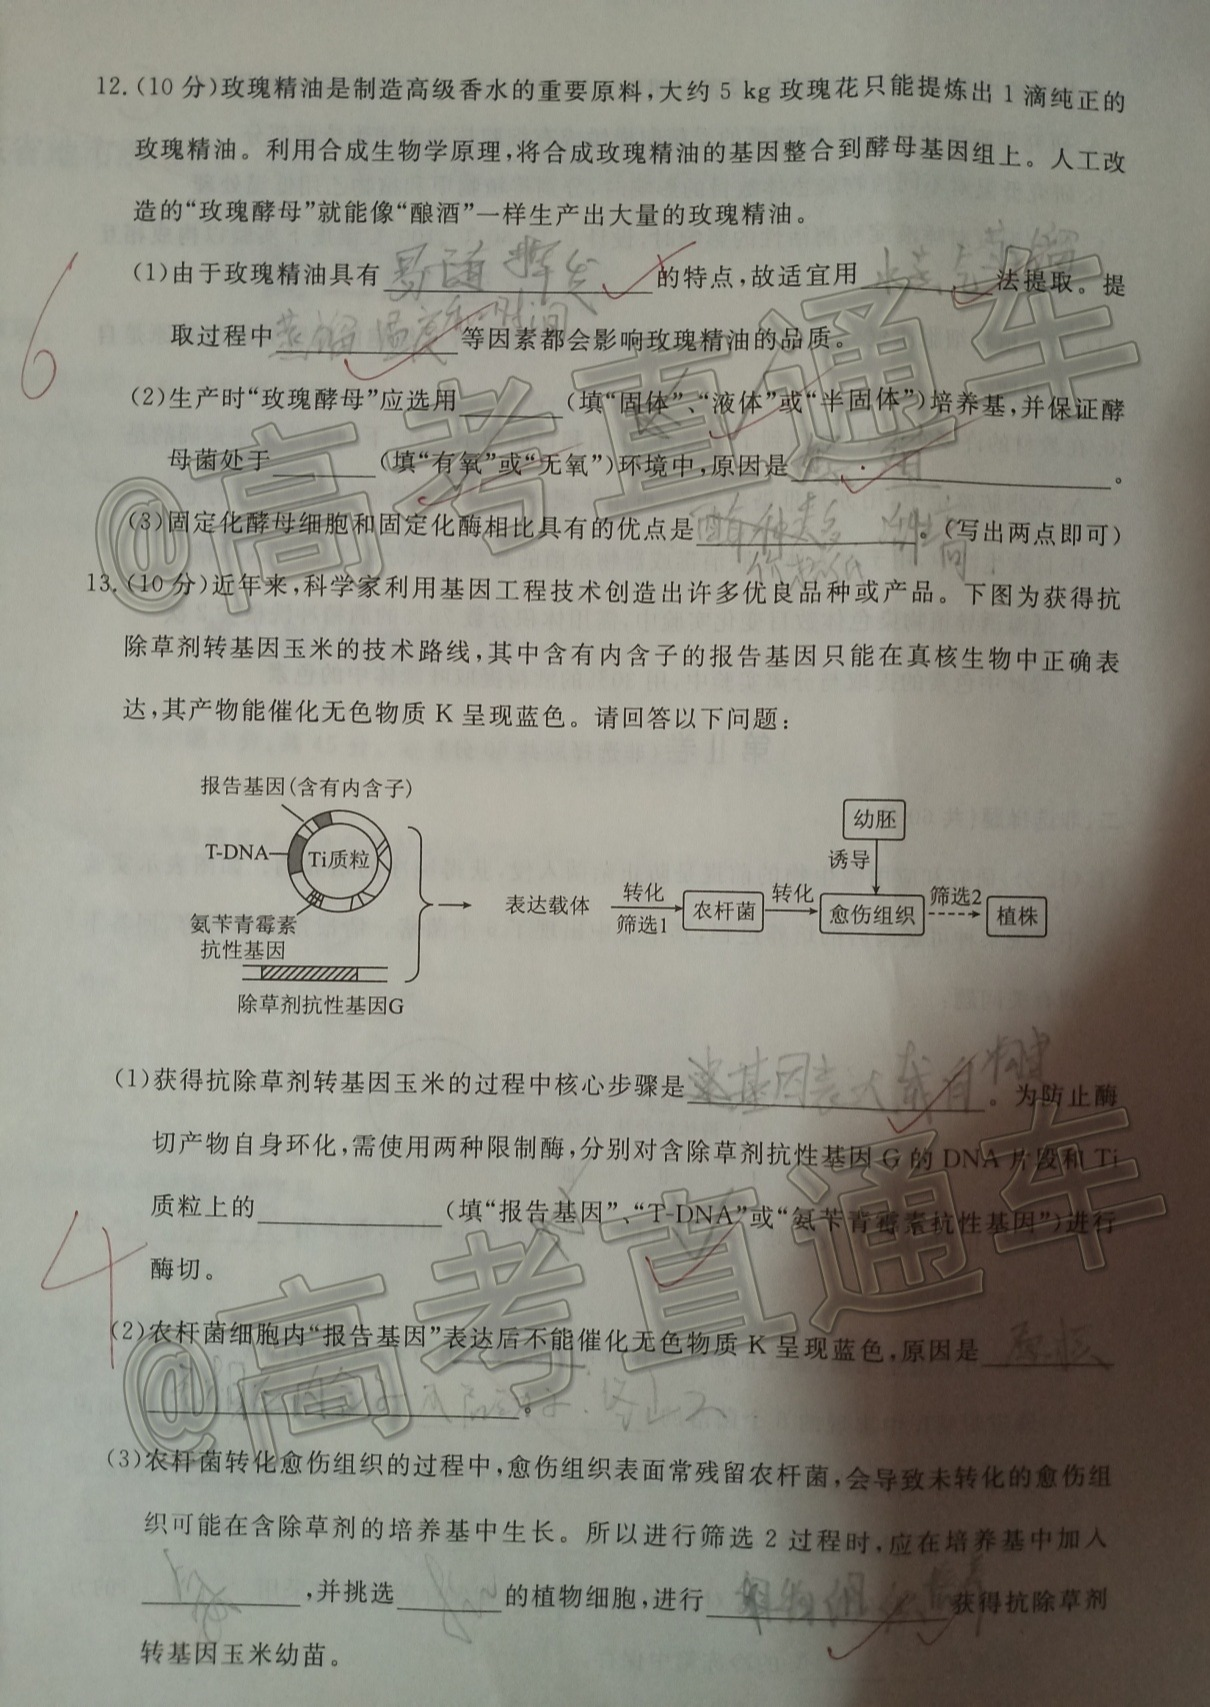 12.(10分)玫瑰精油是制造高级香水的重要原料,大约5 kg玫瑰花只能提炼出1滴纯正的
玫瑰精油。利用合成生物学原理,将合成玫瑰精油的基因整合到酵母基因组上。人工改
造的“玫瑰酵母”就能像“酿酒”一样生产出大量的玫瑰精油。
6
(1)由于玫瑰精油具有 易随 挥发 的特点,故适宜用 水蒸气蒸馏 法提取。提
取过程中 蒸馏温度和时间 等因素都会影响玫瑰精油的品质。
(2)生产时“玫瑰酵母”应选用____(填“固体”、“液体”或“半固体”)培养基,并保证酵
母菌处于____(填“有氧”或“无氧”)环境中,原因是____。
(3)固定化酵母细胞和固定化酶相比具有的优点是 酶种类多 。(写出两点即可)
13.(10分)近年来,科学家利用基因工程技术创造出许多优良品种或产品。下图为获得抗
除草剂转基因玉米的技术路线,其中含有内含子的报告基因只能在真核生物中正确表
达,其产物能催化无色物质K呈现蓝色。请回答以下问题:
报告基因(含有内含子)
T-DNA
Ti质粒
氨苄青霉素
抗性基因
除草剂抗性基因G
表达载体
转化
筛选1
农杆菌
转化
幼胚
诱导
愈伤组织
筛选2
植株
(1)获得抗除草剂转基因玉米的过程中核心步骤是 基因表达载体 构建 。为防止酶
切产物自身环化,需使用两种限制酶,分别对含除草剂抗性基因G的DNA片段和Ti
质粒上的____(填“报告基因”、“T-DNA”或“氨苄青霉素抗性基因”)进行
酶切。
4
(2)农杆菌细胞内“报告基因”表达后不能催化无色物质K呈现蓝色,原因是 原核
____。
(3)农杆菌转化愈伤组织的过程中,愈伤组织表面常残留农杆菌,会导致未转化的愈伤组
织可能在含除草剂的培养基中生长。所以进行筛选2过程时,应在培养基中加入
____,并挑选____的植物细胞,进行 植物组织培养 获得抗除草剂
转基因玉米幼苗。
@高考直通车
@高考直通车